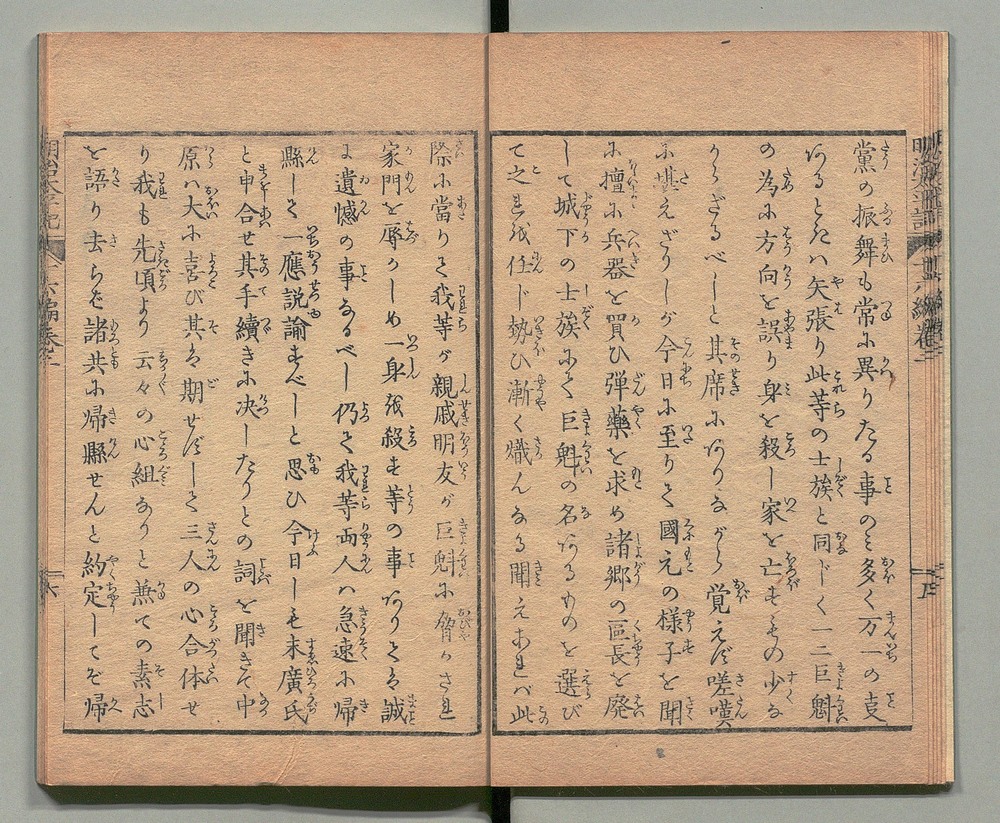 黨の振舞も常に異りたる事のミ多く万一の支
あるときハ矢張り此等の士族と同じく一二巨魁
の為に方向を誤り身を殺し家を亡すもの少な
からざるべしと其席にありながら覚えず嗟嘆
に堪えざりしが今日に至りて國元の様子を聞
に擅に兵器を買ひ弾藥を求め諸郷の區長を廃
して城下の士族にて巨魁の名あるものを選び
て之れに任じ勢ひ漸く熾んなる聞えあれバ此
際に當りて我等が親戚朋友が巨魁に脅かされ
家門を辱かしめ一身を殺す等の事ありてハ誠
に遺憾の事なるべし仍て我等両人ハ急速に帰
縣して一應説諭すべしと思ひ今日しも末廣氏
と申合せ其手續きに决したりとの詞を聞きて中
原ハ大に喜び其ハ期せずして三人の心合体せ
り我も先頃より云々の心組ありと兼ての素志
を語り去らバ諸共に帰縣せんと約定してぞ帰
明治太平記
十六編巻之一
六